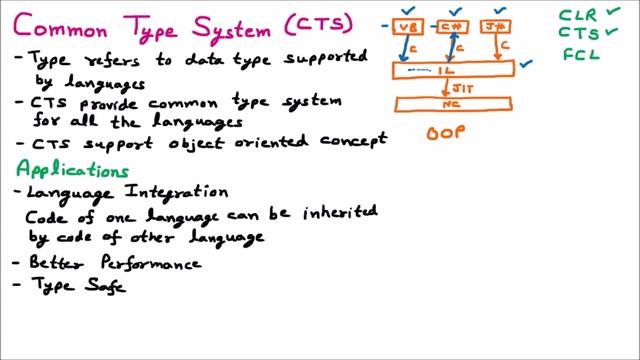 Common Type System (CTS)
- Type refers to data type supported
by languages
- CTS provide common type system
for all the languages
- CTS support object oriented concept
Applications
- Language Integration
Code of one language can be inherited
by code of other language
- Better Performance
- Type Safe
VB C# J#
C C C
IL
JIT
NC
OOP
CLR ✓
CTS ✓
FCL